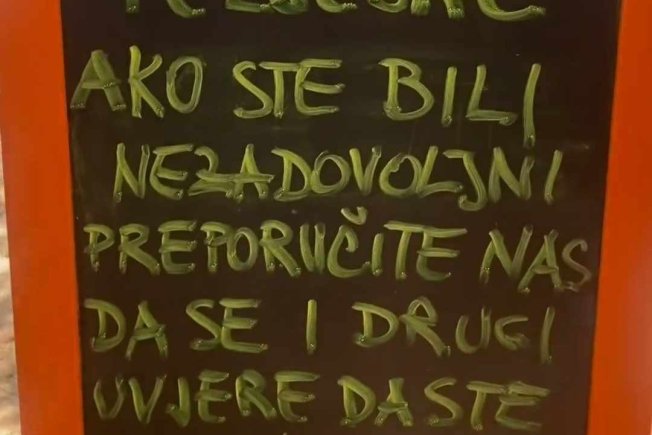 AKO STE BILI
NEZADOVOLJNI
PREPORUČITE NAS
DA SE I DRUGI
UVJERE DA STE